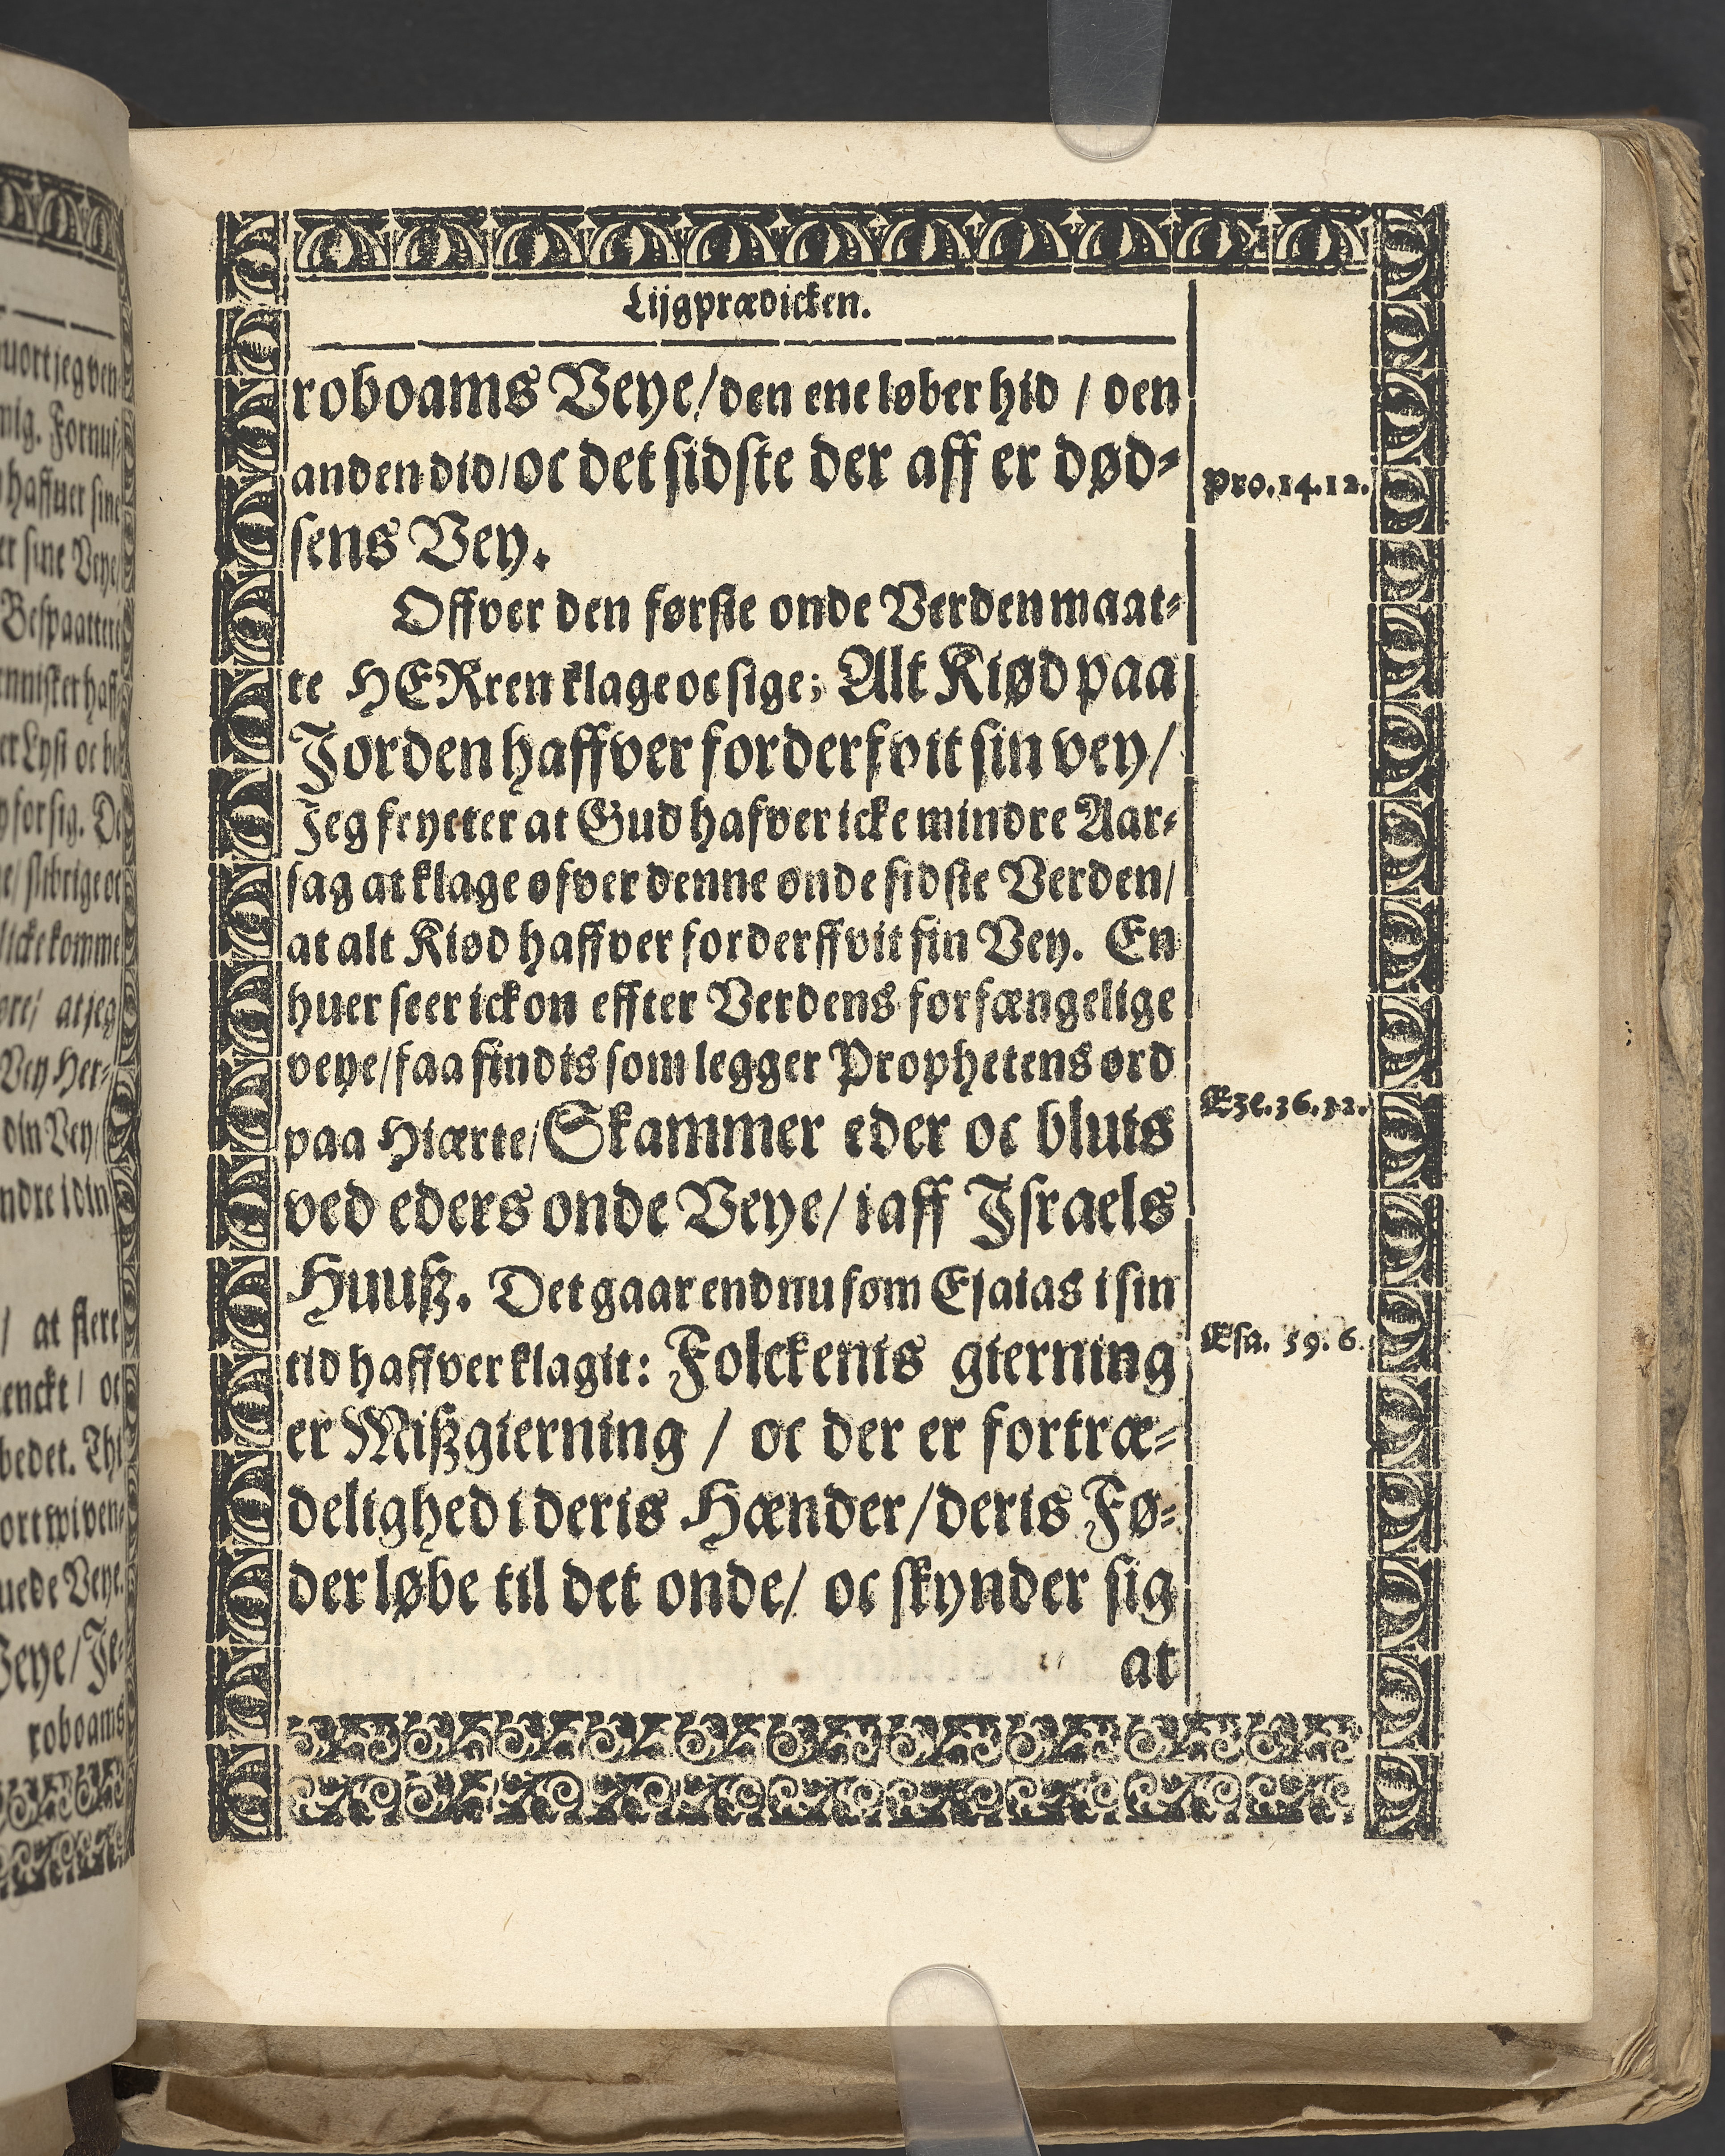 Lijgprædicken.
roboams Veye/den ene løber hid / den
anden did/oc det sidste der aff er død-
sens Vey.
Pro.14.12.
Offver den første onde Verden maat-
te HERren klage oc sige; Alt Kiød paa
Jorden haffver forderfvit sin vey/
Jeg fryeter at Gud hafver icke mindre Aar-
sag at klage ofver denne onde sidste Verden/
at alt Kiød haffver forderffvit sin Vey. En
huer seer ickon effter Verdens forfængelige
veye/faa findis som legger Prophetens ord
paa Hiærte/Skammer eder oc bluis
Eze.36.32.
ved eders onde Veye/ i aff Israels
Huusz. Det gaar endnu som Esaias i sin
tid haffver klagit: Folckenis gierning
Esa. 59. 6.
er Miszgierning / oc der er fortræ-
delighed i deris Hænder/deris Fø-
der løbe til det onde/ oc skynder sig
at
uort jeg ven
mig. Fornuf-
haffuer sine
er sine Veye
Bespaattere
ennisker haff
er Lyst oc be
for sig. De
slibrige oc
licke komme
ore/ at jeg
Vey Her-
din Vey/
ndre i din
/ at flere
enckt / oc
bedet. Thi
ort wi ven-
uede Veye.
Veye/Je-
roboams